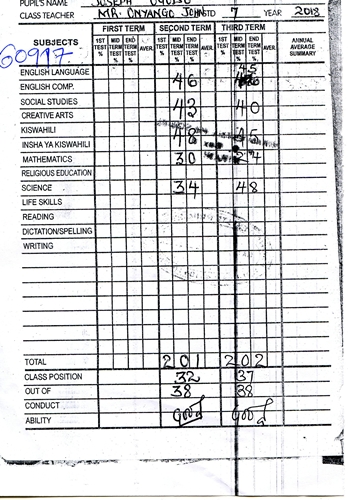 PUPIL'S NAME JOSEPH
CLASS TEACHER MR. ONYANGO JOHN STD 7 YEAR 2018
60917
SUBJECTS FIRST TERM SECOND TERM THIRD TERM ANNUAL AVERAGE SUMMARY
1ST TEST % MID TERM TEST END TERM TEST % AVER. 1ST TEST % MID TERM TEST END TERM TEST % AVER. 1ST TEST % MID TERM TEST END TERM TEST % AVER.
ENGLISH LANGUAGE 45
ENGLISH COMP. 46
SOCIAL STUDIES 43 40
CREATIVE ARTS
KISWAHILI 48 45
INSHA YA KISWAHILI
MATHEMATICS 30 24
RELIGIOUS EDUCATION
SCIENCE 34 48
LIFE SKILLS
READING
DICTATION/SPELLING
WRITING
TOTAL 201 202
CLASS POSITION 32 37
OUT OF 38 38
CONDUCT Good Good
ABILITY